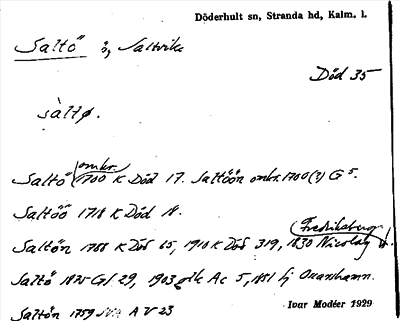 Döderhult sn, Stranda hd, Kalm. l.
Saltö ö, Saltvik
Död 35
sàltø.
Saltö (omkr. 1700 K Död 17. Saltöön omkr. 1700(?) G 5.
Saltöö 1718 K Död 18.
Saltön 1788 K Död 65, 1910 K Död 319, 1830 Nicolay (Fredriksberg)
Saltö 1825 Gl 29, 1903 Ac 5, 1851 fj Oskarshamn.
Saltön 1759 A V 23
Ivar Modéer 1929